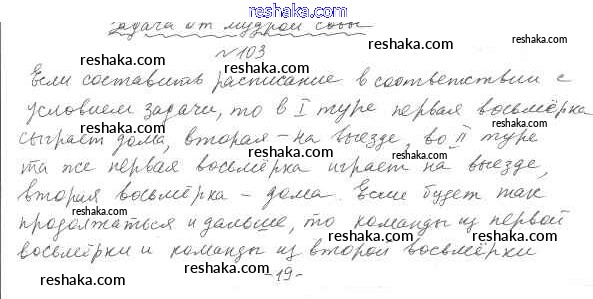 reshaka.com
задача от мудрой совы
reshaka.com reshaka.com
№ 103 reshaka.com
Если составить расписание в соответствии с
reshaka.com
условием задачи, то в I туре первая восьмёрка
reshaka.com reshaka.com
сыграет дома, вторая – на выезде, во II туре
reshaka.com
та же первая восьмёрка играет на выезде,
reshaka.com
вторая восьмёрка – дома. Если будет так
reshaka.com reshaka.com
продолжаться и дальше, то команды из первой
reshaka.com
восьмёрки и команды из второй восьмёрки
reshaka.com -19- reshaka.com